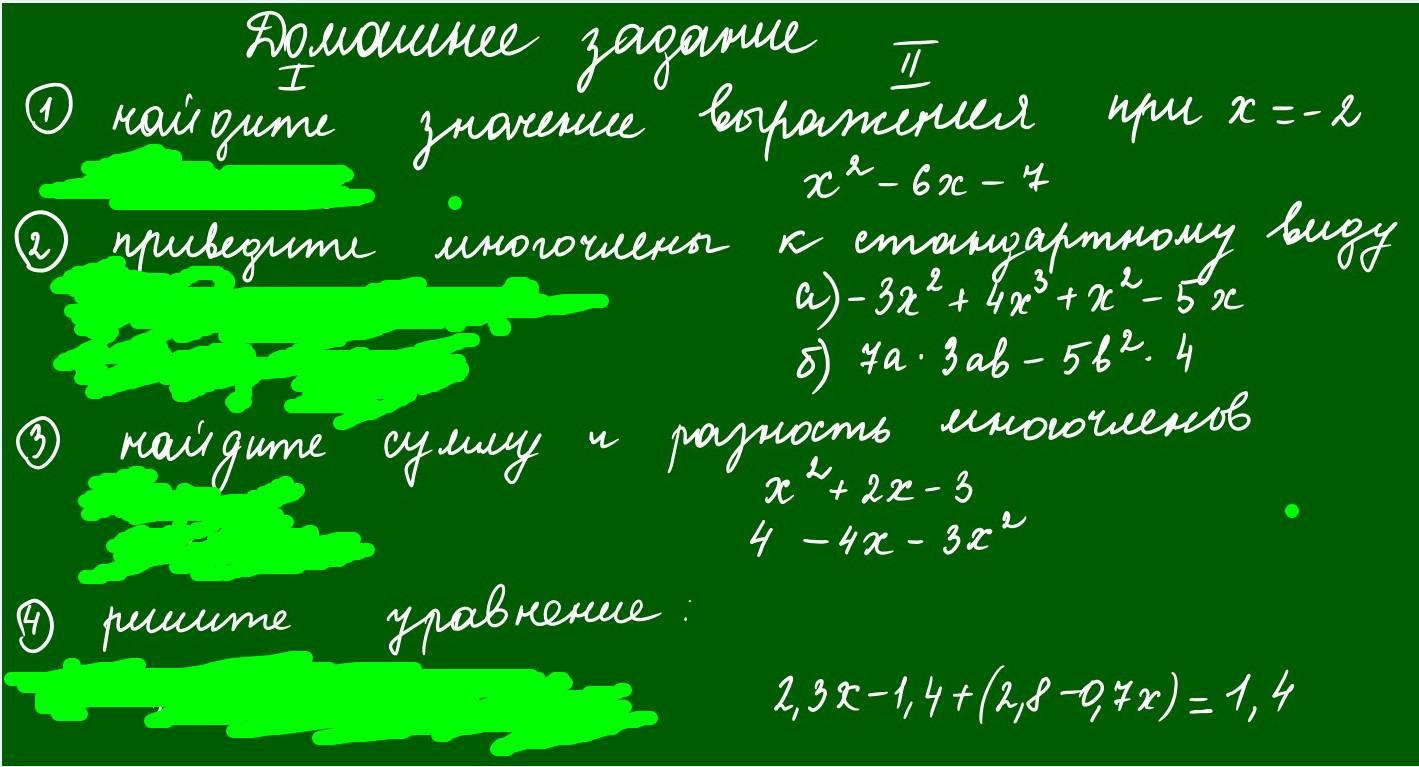 Домашнее задание
I II
① найдите значение выражения при x = -2
x² - 6x - 7
② приведите многочлены к стандартному виду
а) - 3x² + 4x³ + x² - 5x
б) 7a · 3ab - 5b² · 4
③ найдите сумму и разность многочленов
x² + 2x - 3
4 - 4x - 3x²
④ решите уравнение :
2,3x - 1,4 + (2,8 - 0,7x) = 1,4